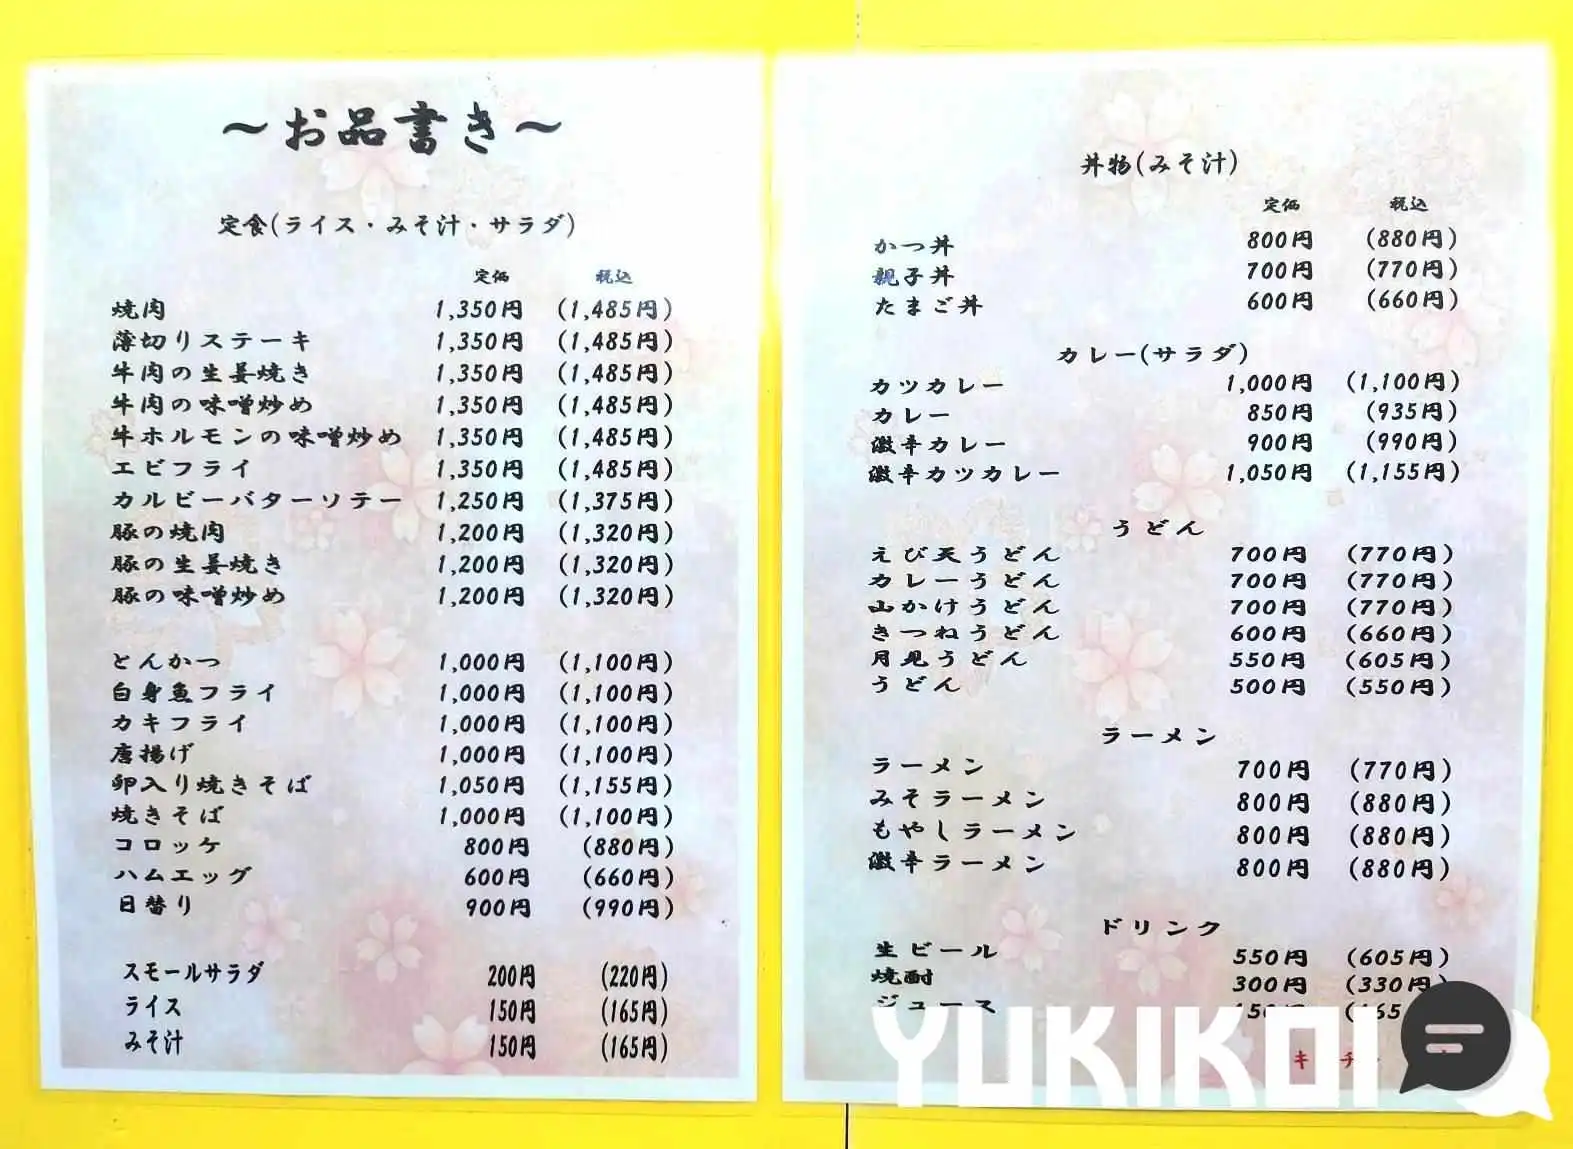 ～お品書き～
定食(ライス・みそ汁・サラダ)
定価 税込
焼肉 1,350円 (1,485円)
薄切りステーキ 1,350円 (1,485円)
牛肉の生姜焼き 1,350円 (1,485円)
牛肉の味噌炒め 1,350円 (1,485円)
牛ホルモンの味噌炒め 1,350円 (1,485円)
エビフライ 1,350円 (1,485円)
カルビーバターソテー 1,250円 (1,375円)
豚の焼肉 1,200円 (1,320円)
豚の生姜焼き 1,200円 (1,320円)
豚の味噌炒め 1,200円 (1,320円)
とんかつ 1,000円 (1,100円)
白身魚フライ 1,000円 (1,100円)
カキフライ 1,000円 (1,100円)
唐揚げ 1,000円 (1,100円)
卵入り焼きそば 1,050円 (1,155円)
焼きそば 1,000円 (1,100円)
コロッケ 800円 (880円)
ハムエッグ 600円 (660円)
日替り 900円 (990円)
スモールサラダ 200円 (220円)
ライス 150円 (165円)
みそ汁 150円 (165円)
丼物(みそ汁)
定価 税込
かつ丼 800円 (880円)
親子丼 700円 (770円)
たまご丼 600円 (660円)
カレー(サラダ)
カツカレー 1,000円 (1,100円)
カレー 850円 (935円)
激辛カレー 900円 (990円)
激辛カツカレー 1,050円 (1,155円)
うどん
えび天うどん 700円 (770円)
カレーうどん 700円 (770円)
山かけうどん 700円 (770円)
きつねうどん 600円 (660円)
月見うどん 550円 (605円)
うどん 500円 (550円)
ラーメン
ラーメン 700円 (770円)
みそラーメン 800円 (880円)
もやしラーメン 800円 (880円)
激辛ラーメン 800円 (880円)
ドリンク
生ビール 550円 (605円)
焼酎 300円 (330円)
ジュース
YUKIKOI